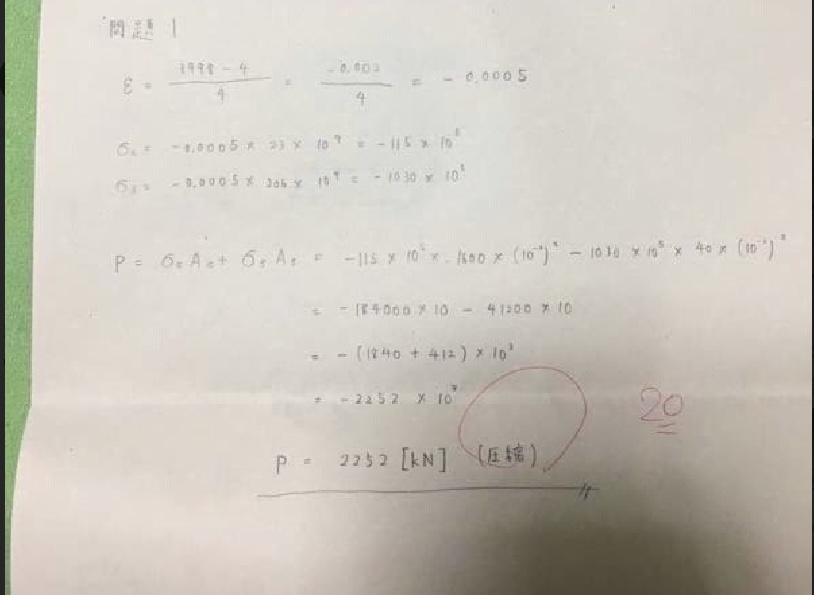 問題 1
ε = 3.998 - 4 / 4 = -0.002 / 4 = - 0.0005
σc = -0.0005 × 23 × 10⁹ = -115 × 10⁵
σs = -0.0005 × 206 × 10⁹ = -1030 × 10⁵
P = σc Ac + σs As = -115 × 10⁵ × 1600 × (10⁻²)² - 1030 × 10⁵ × 40 × (10⁻²)²
= -184000 × 10 - 41200 × 10
= -(1840 + 412) × 10³
= -2252 × 10³
20
P = 2252 [kN] (圧縮)